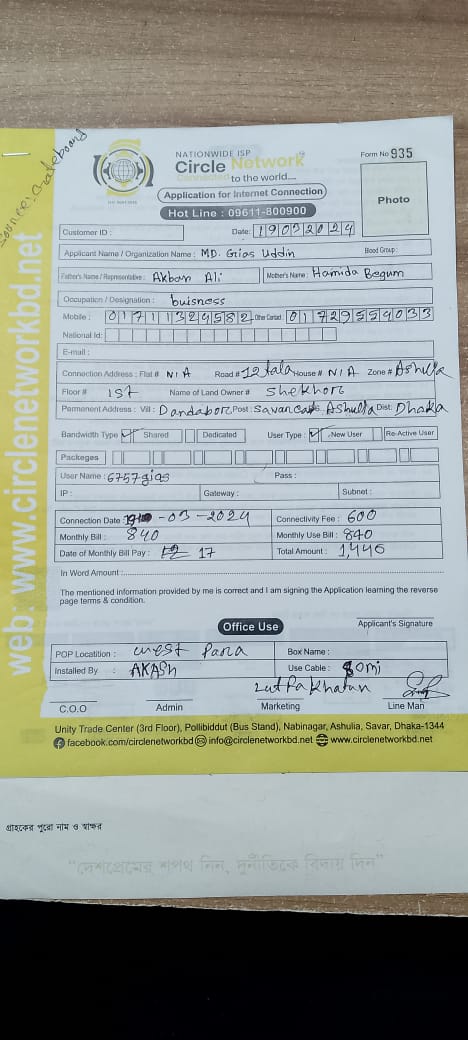 Source: Grateboard
web: www.circlenetworkbd.net
NATIONWIDE ISP
Circle Network
Connected to the world....
Form No 935
Application for Internet Connection
Hot Line : 09611-800900
Photo
Customer ID :
Date: 19032024
Applicant Name / Organization Name : MD. Gias Uddin
Blood Group :
Father's Name / Representative : Akbar Ali
Mother's Name : Hamida Begum
Occupation / Designation : buisness
Mobile : 01711324582 Other Contact : 01729554033
National Id:
E-mail :
Connection Address : Flat # N/A Road # 12 tala House # N/A Zone # Ashulia
Floor # 1st Name of Land Owner # Shekhor
Permenent Address : Vill : Dandabor Post : Savar Cant Ashulia Dist: Dhaka
Bandwidth Type Shared Dedicated User Type : New User Re-Active User
Packeges
User Name : 6757gias Pass :
IP : Gateway : Subnet :
Connection Date : 19-03-2024
Connectivity Fee : 600
Monthly Bill : 840
Monthly Use Bill : 840
Date of Monthly Bill Pay : 17
Total Amount : 1,440
In Word Amount :
The mentioned information provided by me is correct and I am signing the Application learning the reverse
page terms & condition.
Office Use
Applicant's Signature
POP Locatition : west Para
Box Name :
Installed By : AKASH
Use Cable : 80mi
Lutfa khatun
C.O.O
Admin
Marketing
Line Man
Unity Trade Center (3rd Floor), Pollibiddut (Bus Stand), Nabinagar, Ashulia, Savar, Dhaka-1344
facebook.com/circlenetworkbd info@circlenetworkbd.net www.circlenetworkbd.net
গ্রাহকের পুরো নাম ও স্বাক্ষর
“দেশপ্রেমের শপথ নিন, দুর্নীতিকে বিদায় দিন”